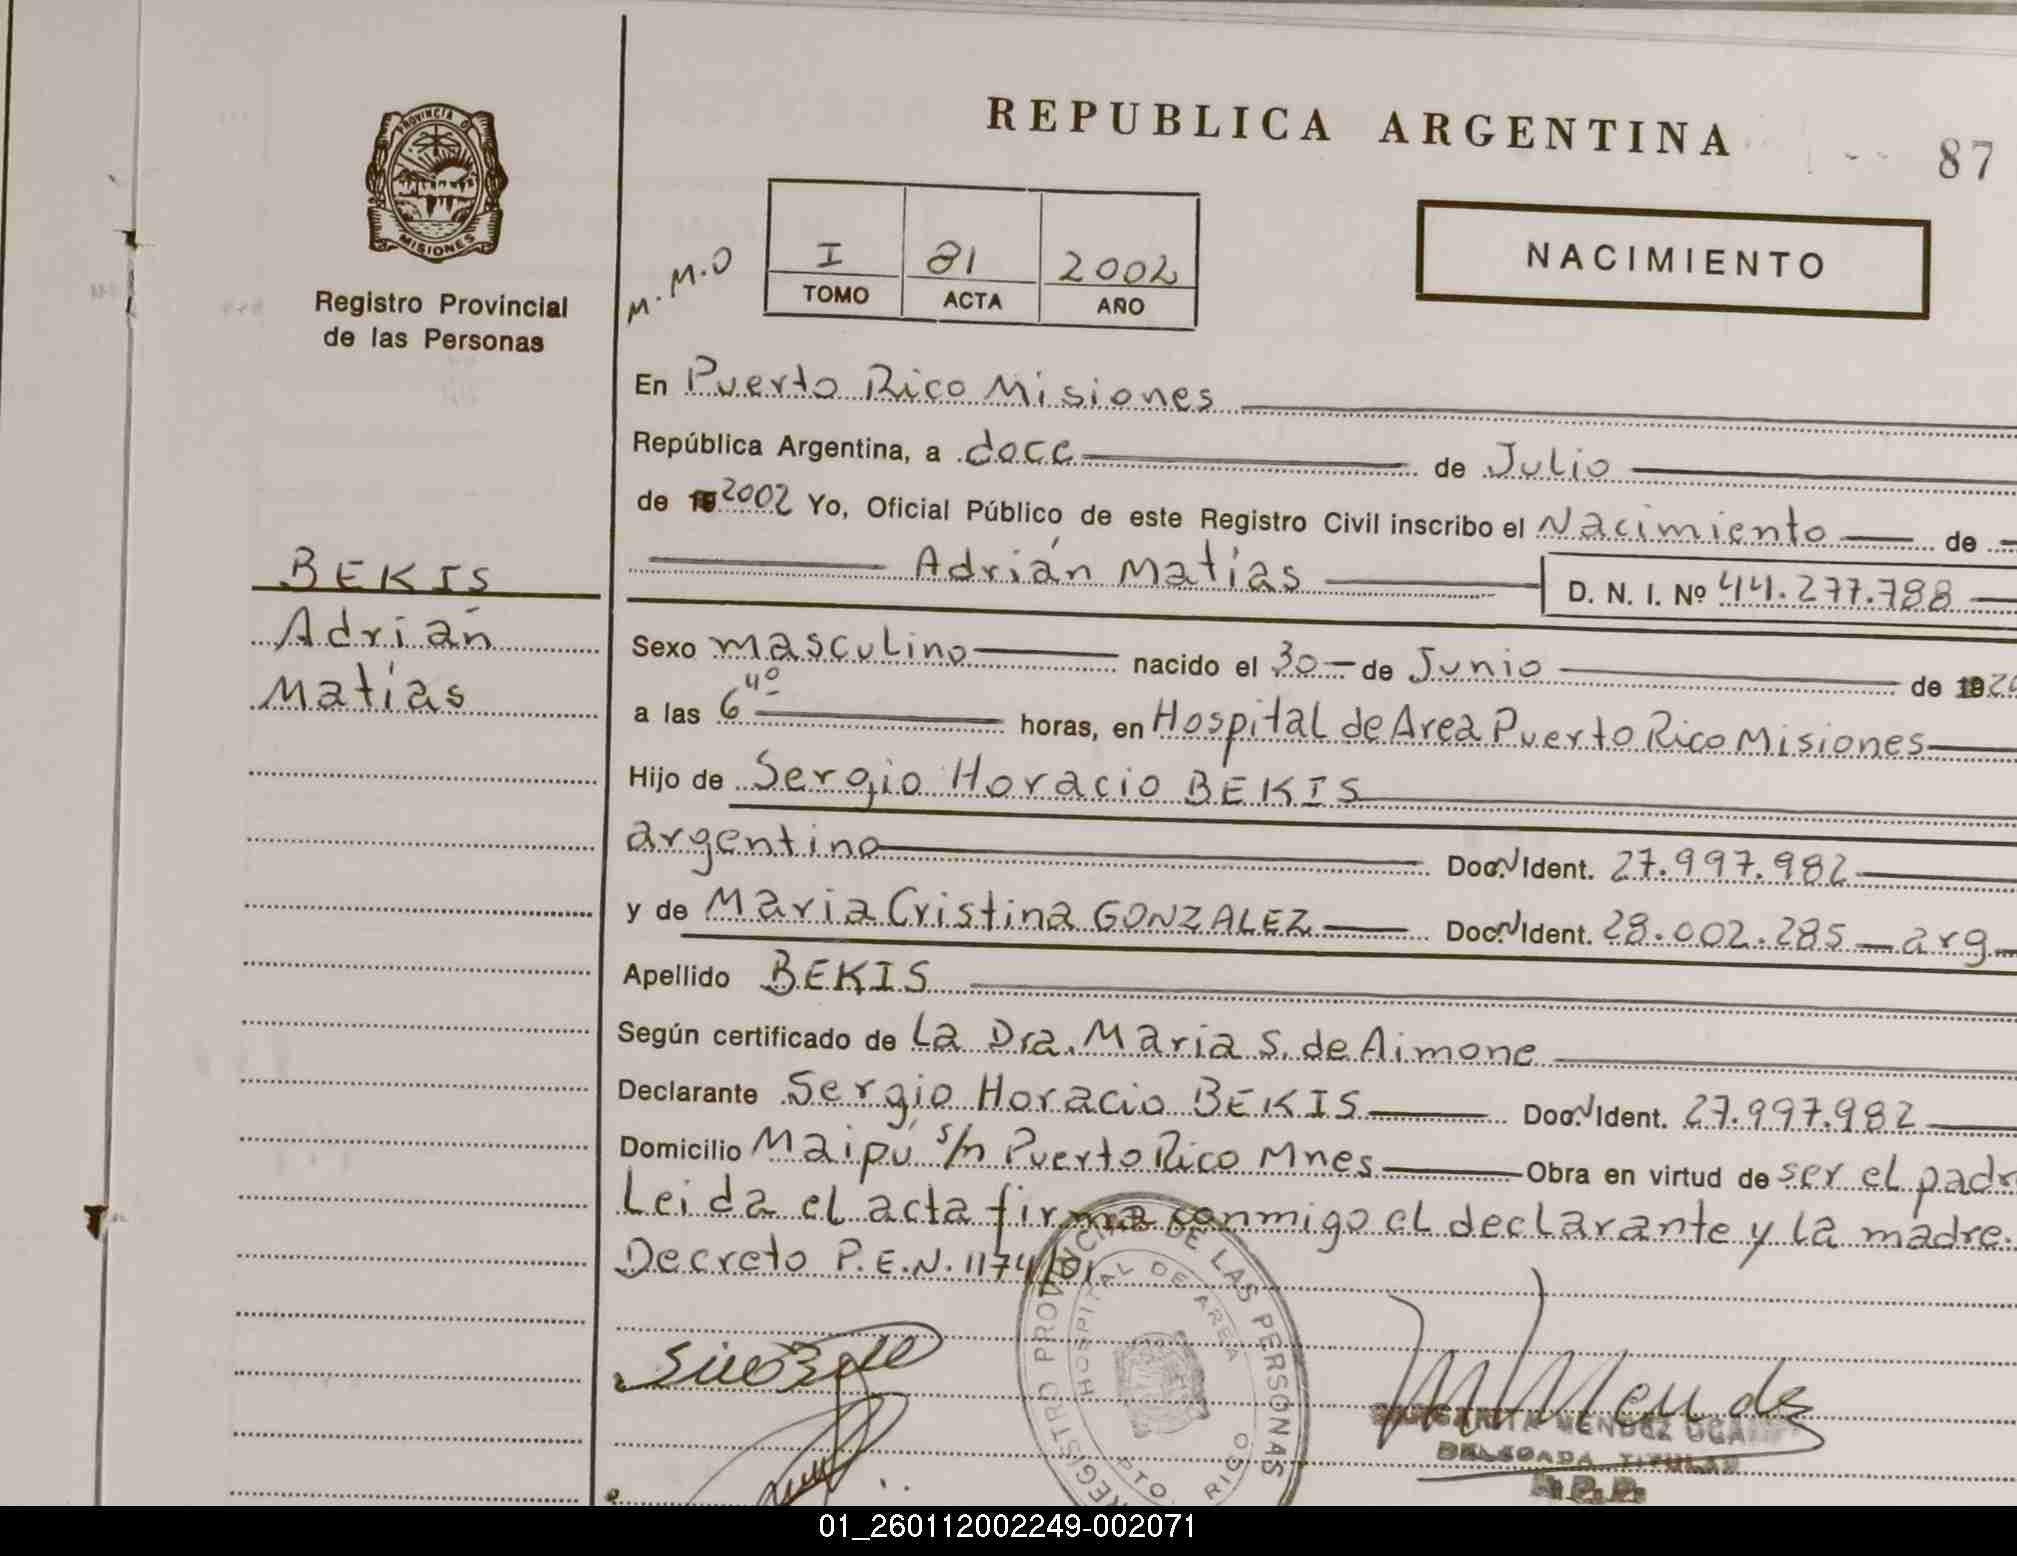 REPUBLICA ARGENTINA
87
PROVINCIA D
MISIONES
Registro Provincial
de las Personas
M.M.O
I 81 2002
TOMO ACTA AÑO
NACIMIENTO
En Puerto Rico Misiones
República Argentina, a doce de Julio
de 19 2002 Yo, Oficial Público de este Registro Civil inscribo el Nacimiento de
Adrián Matías D. N. I. Nº 44.277.788
BEKIS
Adrián
Matías
Sexo masculino nacido el 30 de Junio de 19 20
a las 6 40 horas, en Hospital de Area Puerto Rico Misiones
Hijo de Sergio Horacio BEKIS
argentino Doc. N Ident. 27.997.982
y de Maria Cristina GONZALEZ Doc. N Ident. 28.002.285 arg
Apellido BEKIS
Según certificado de La Dra. Maria S. de Aimone
Declarante Sergio Horacio BEKIS Doc. N Ident. 27.997.982
Domicilio Maipú s/n Puerto Rico Mnes Obra en virtud de ser el padr
Leida el acta firma conmigo el declarante y la madre.
Decreto P.E.N. 1174/01
REGISTRO PROVINCIAL DE LAS PERSONAS
HOSPITAL DE AREA
PTO. RICO
MARGARITA MENDEZ
DELEGADA TITULAR
R.P.P.
01_260112002249-002071